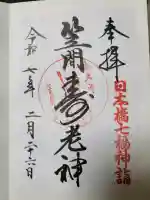 奉拝
日本橋七福神詣
笠間寿老神
令和七年二月二十六日